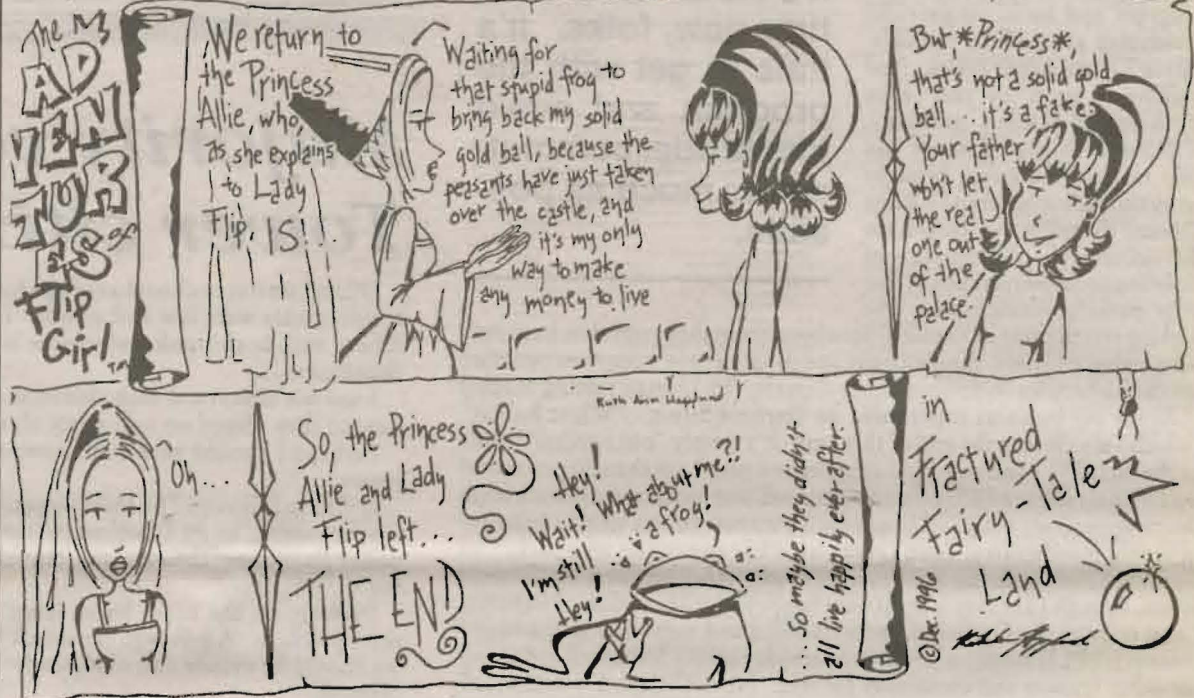 The
AD
VEN
TUR
ES of
Flip
Girl™
We return to
the Princess
Allie, who,
as she explains
to Lady
Flip, IS!..
Waiting for
that stupid frog to
bring back my solid
gold ball, because the
peasants have just taken
over the castle, and
it's my only
way to make
any money to live
But, *Princess*,
that's not a solid gold
ball... it's a fake.
Your father
won't let
the real
one out
of the
palace.
Oh...
So, the Princess
Allie and Lady
Flip left...
THE END
Ruth Ann
Hey!
Wait! What about me?!
I'm still a frog!
Hey!
...So maybe they didn't
all live happily ever after.
in
Fractured
Fairy-Tale
Land
©Dec. 1996